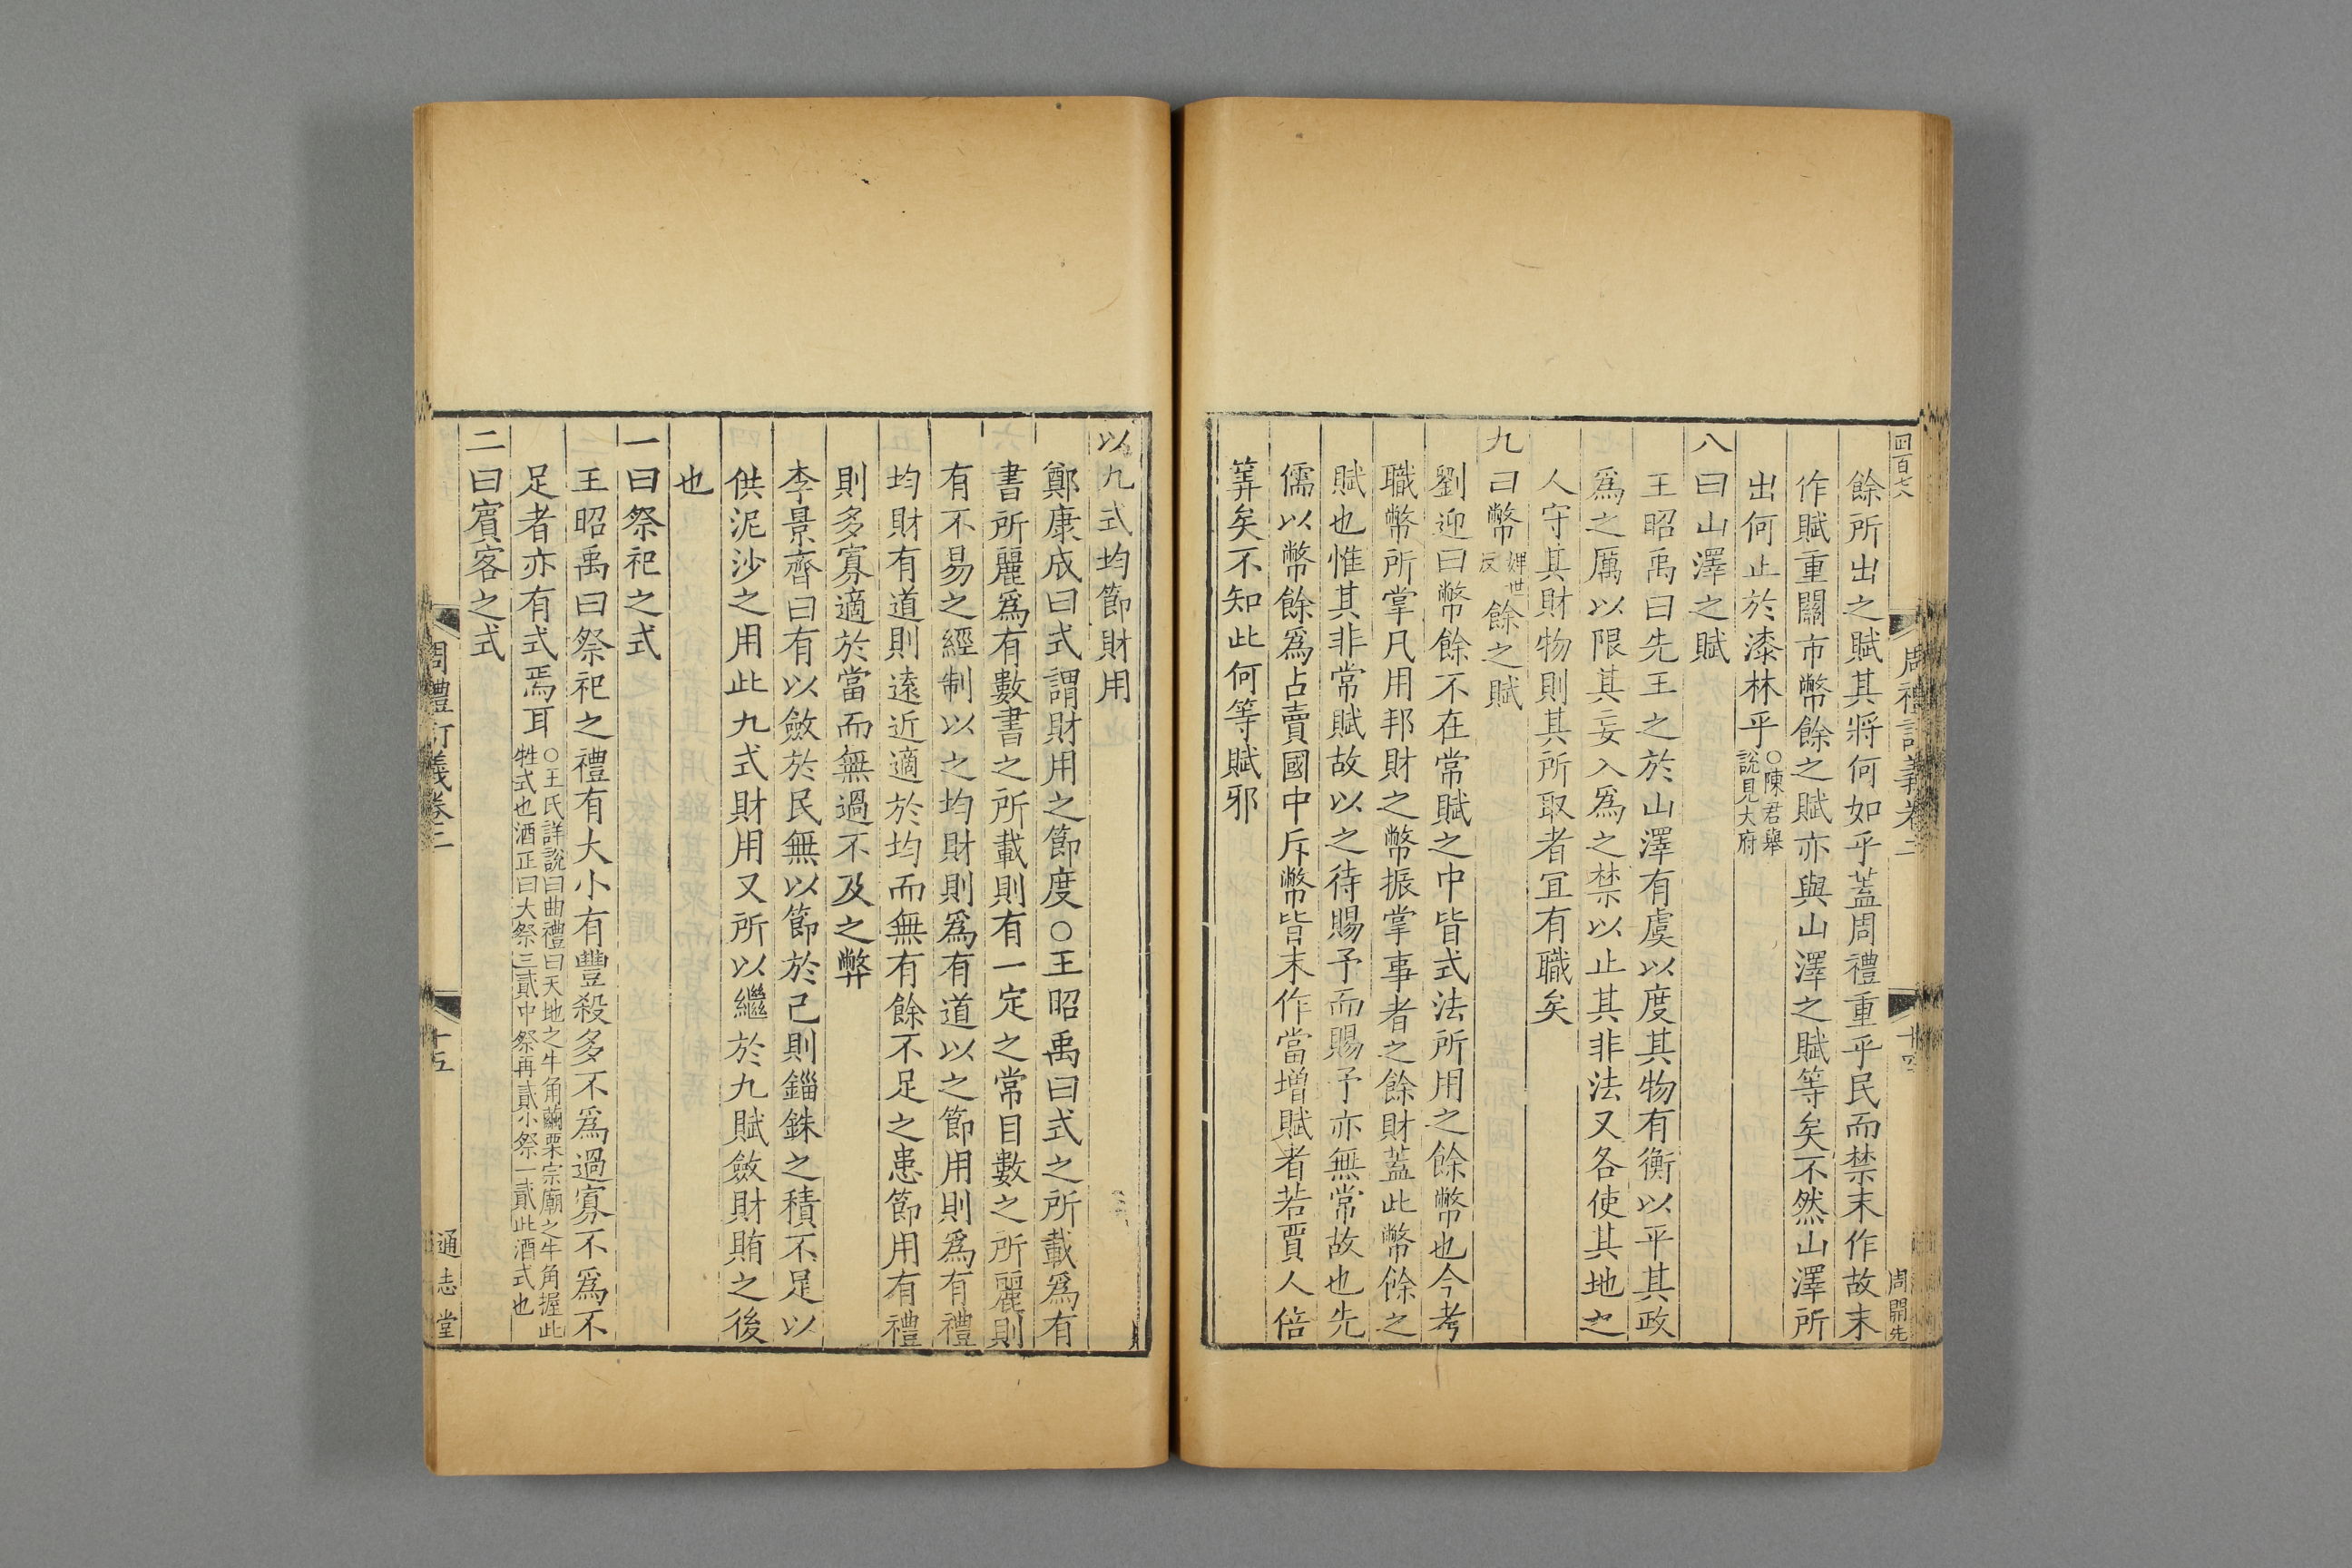 四百七八
周禮訂義卷三
十四
周開先
餘所出之賦其將何如乎蓋周禮重乎民而禁末作故末
作賦重關市幣餘之賦亦與山澤之賦等矣不然山澤所
出何止於漆林乎○陳君舉說見大府
八曰山澤之賦
王昭禹曰先王之於山澤有虞以度其物有衡以平其政
爲之厲以限其妄入爲之禁以止其非法又各使其地之
人守其財物則其所取者冝有職矣
九曰幣婢世反餘之賦
劉迎曰幣餘不在常賦之中皆式法所用之餘幣也今考
職幣所掌凡用邦財之幣振掌事者之餘財蓋此幣餘之
賦也惟其非常賦故以之待賜予而賜予亦無常故也先
儒以幣餘爲占賣國中斥幣皆末作當增賦者若賈人倍
筭矣不知此何等賦邪
以九式均節財用
鄭康成曰式謂財用之節度○王昭禹曰式之所載爲有
書所麗爲有數書之所載則有一定之常目數之所麗則
有不易之經制以之均財則爲有道以之節用則爲有禮
均財有道則遠近適於均而無有餘不足之患節用有禮
則多寡適於當而無過不及之弊
李景齊曰有以斂於民無以節於己則錙銖之積不足以
供泥沙之用此九式財用又所以繼於九賦斂財賄之後
也
一曰祭祀之式
王昭禹曰祭祀之禮有大小有豐殺多不爲過寡不爲不
足者亦有式焉耳○王氏詳說曰曲禮曰天地之牛角繭栗宗廟之牛角握此牲式也酒正曰大祭三貳中祭再貳小祭一貳此酒式也
二曰賓客之式
周禮訂義卷三
十五
通志堂